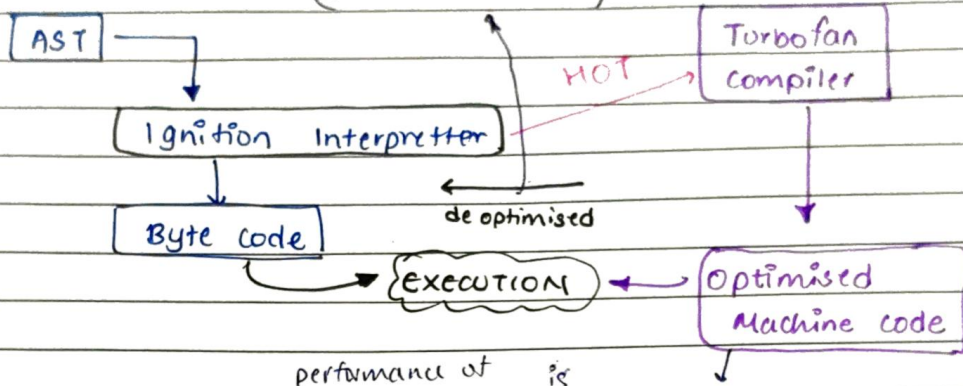 AST
Turbofan
compiler
HOT
Ignition Interpretter
de optimised
Byte code
EXECUTION
Optimised
Machine code
performance of is